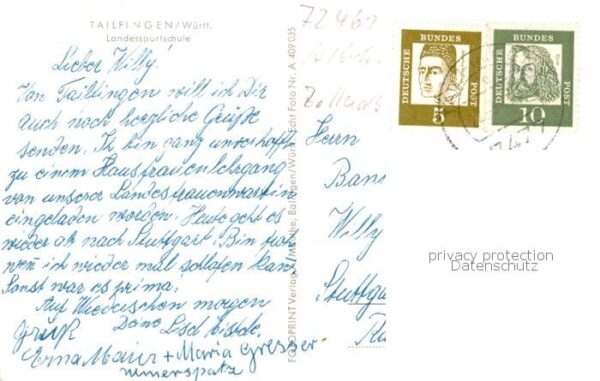 TAILFINGEN/Württ.
Landessportschule
Lieber Willy!
Von Tailfingen will ich Dir
auch noch herzliche Grüße
senden. Ich bin ganz unverhofft
zu einem Hausfrauenlehrgang
von unserer Landesfrauenwartin
eingeladen worden. Heute geht es
wieder ab nach Stuttgart. Bin froh
wenn ich wieder mal schlafen kann
Sonst war es prima.
Auf Wiedersehen morgen
Deine
Gruß
Erna Maier + Maria Gresser
FOTOPRINT Verlag Balingen/Württ. Echt Foto Nr. A 409 035
72461
Herrn
Willy
Stuttgar
DEUTSCHE BUNDES POST
5
DEUTSCHE BUNDES POST
10
privacy protection
Datenschutz